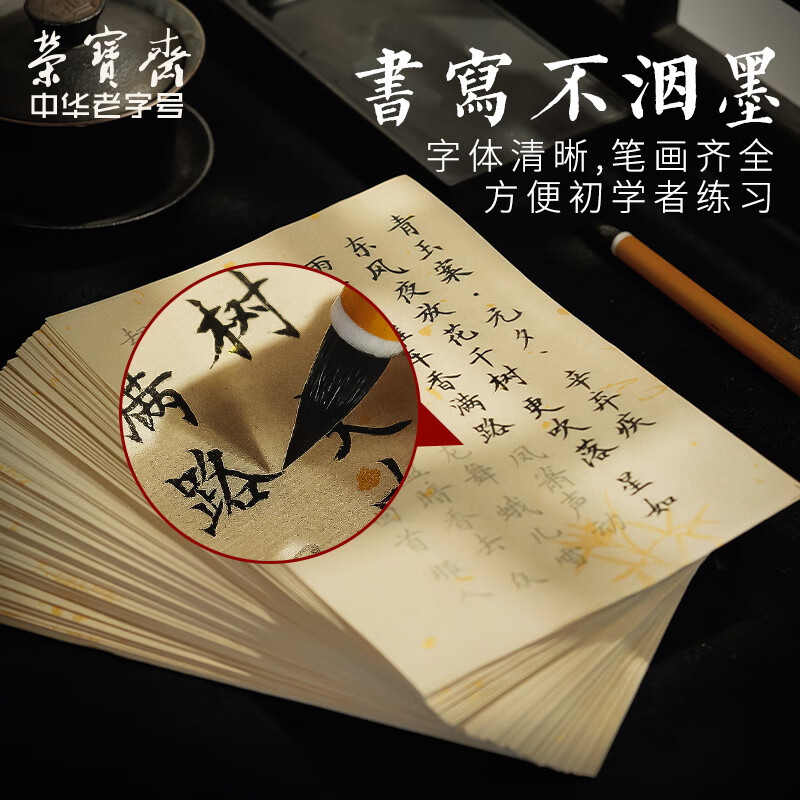 榮寶齋
中华老字号
書寫不洇墨
字体清晰,笔画齐全
方便初学者练习
青玉案·元夕、辛弃疾
东风夜放花千树更吹落星如
雨
车香满路凤箫声动
龙舞
蛾儿雪
盈暗香去众
首那人
树
满路